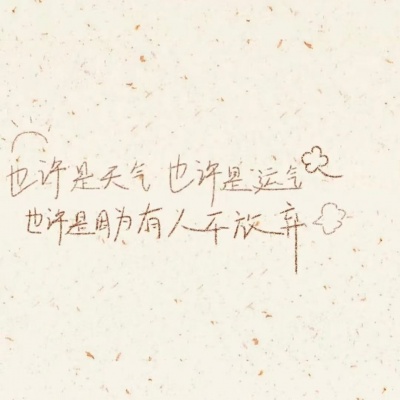 也许是天气 也许是运气
也许是因为有人不放弃